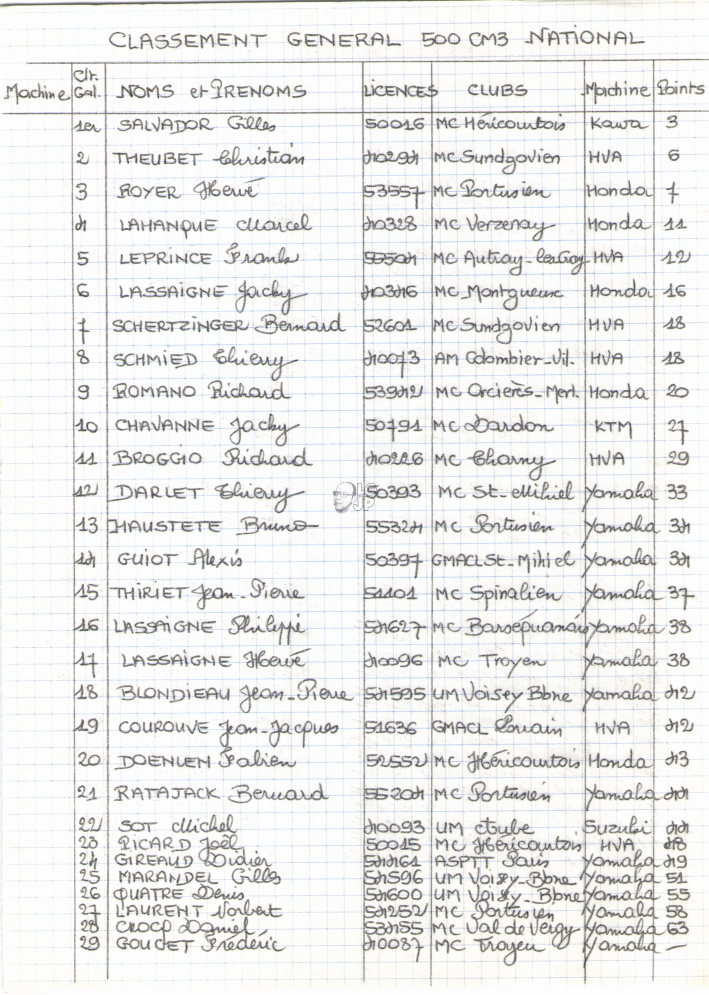 CLASSEMENT GENERAL 500 CM3 NATIONAL
Machine Clt. Gal. NOMS et PRENOMS LICENCES CLUBS Machine Points
1er SALVADOR Gilles 50016 MC Héricourtois Kawa 3
2 THEUBET Christian 40294 MC Sundgovien HVA 6
3 ROYER Hervé 53557 MC Portusien Honda 7
4 LAHANQUE Marcel 40328 MC Verzenay Honda 11
5 LEPRINCE Frank 55504 MC Autray-les-Gray HVA 12
6 LASSAIGNE Jacky 40346 MC Montgueux Honda 16
7 SCHERTZINGER Bernard 52601 MC Sundgovien HVA 18
8 SCHMIED Thierry 40073 AM Colombier-Vil. HVA 18
9 ROMANO Richard 53942 MC Orcières-Merl. Honda 20
10 CHAVANNE Jacky 50791 MC Dardon KTM 27
11 BROGGIO Richard 40226 MC Charny HVA 29
12 DARLET Thierry 50393 MC St-Mihiel Yamaha 33
13 HAUSTETE Bruno 55324 MC Portusien Yamaha 34
14 GUIOT Alexis 50397 GMACL St-Mihiel Yamaha 34
15 THIRIET Jean-Pierre 51101 MC Spinalien Yamaha 37
16 LASSAIGNE Philippe 54627 MC Barséquanais Yamaha 38
17 LASSAIGNE Hervé 40096 MC Troyen Yamaha 38
18 BLONDIEAU Jean-Pierre 54595 UM Voisey Bbne Yamaha 42
19 COUROUVE Jean-Jacques 51636 GMACL Louvain HVA 42
20 DOENLEN Fabien 52552 MC Héricourtois Honda 43
21 RATAJACK Bernard 55204 MC Portusien Yamaha 44
22 SOT Michel 40093 UM Aube Suzuki 44
23 PICARD Joël 50015 MC Héricourtois HVA 48
24 GIREAUD Didier 54461 ASPTT Paris Yamaha 49
25 MARANDEL Gilles 54596 UM Voisey-Bbne Yamaha 51
26 QUATRE Denis 54600 UM Voisey-Bbne Yamaha 55
27 LAURENT Norbert 54252 MC Portusien Yamaha 58
28 Daniel 53455 MC Val de Vergy Yamaha 63
29 GOUGET Frédéric 40087 MC Troyen Yamaha —